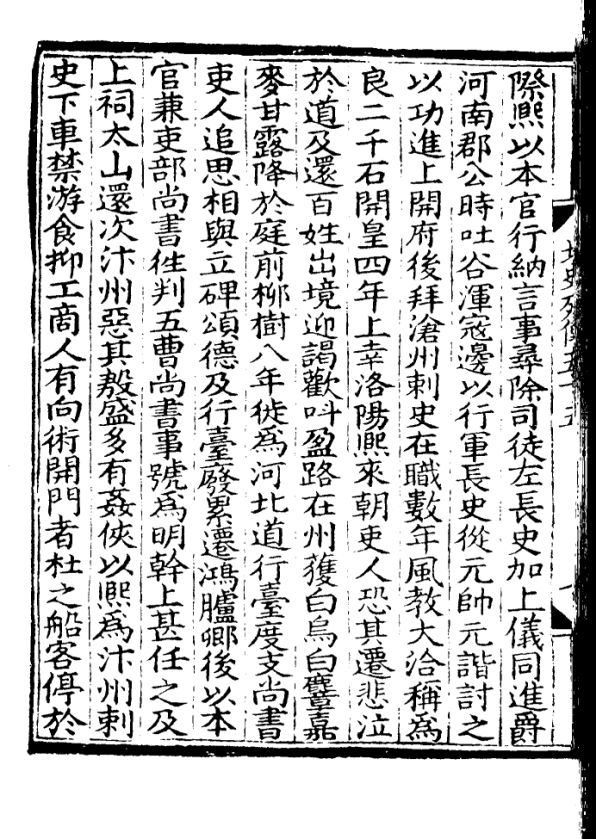 際熙以本官行納言事尋除司徒左長史加上儀同進爵
河南郡公時吐谷渾寇邊以行軍長史從元帥元諧討之
以功進上開府後拜滄州刺史在職數年風教大洽稱爲
良二千石開皇四年上幸洛陽熙來朝吏人恐其遷悲泣
於道及還百姓出境迎謁歡呌盈路在州獲白烏白麞嘉
麥甘露降於庭前栁樹八年徙爲河北道行臺度支尚書
吏人追思相與立碑頌德及行臺廢累遷鴻臚卿後以本
官兼吏部尚書徃判五曹尚書事號爲明幹上甚任之及
上祠太山還次汴州惡其殷盛多有姦俠以熙爲汴州刺
史下車禁游食抑工商人有向術開門者杜之船客停於